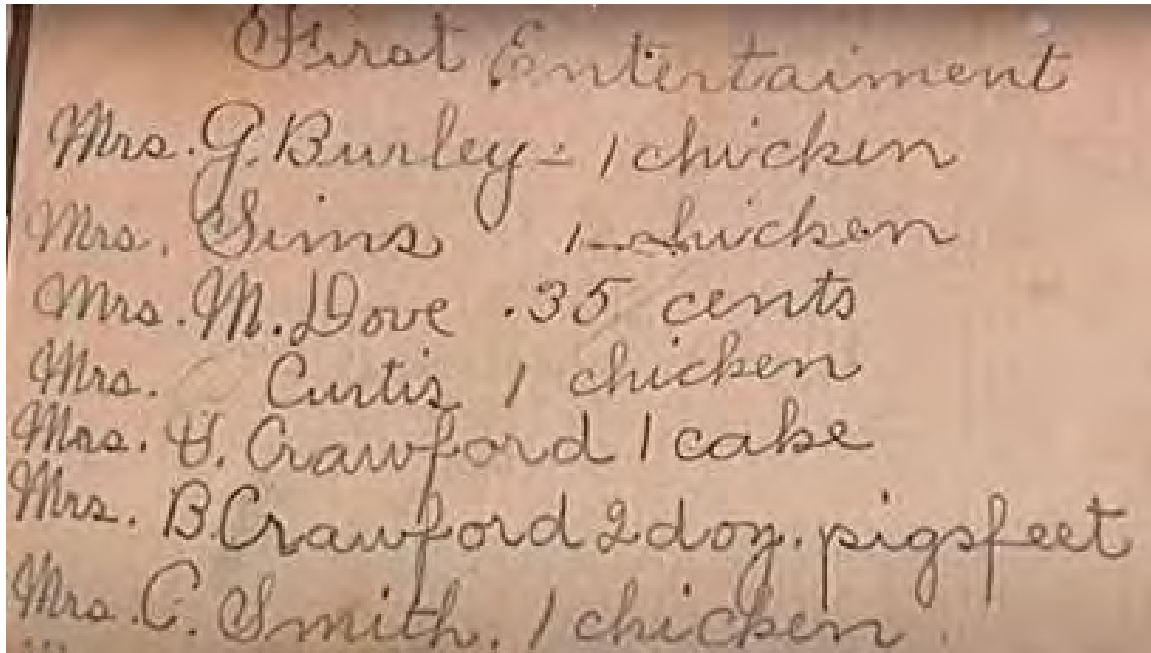 First Entertaiment
Mrs. G. Burley - 1 chicken
Mrs. Sims 1 chicken
Mrs. M. Dove .35 cents
Mrs. Curtis 1 chicken
Mrs. Crawford 1 cake
Mrs. B. Crawford 2 doz. pigsfeet
Mrs. C. Smith. 1 chicken.